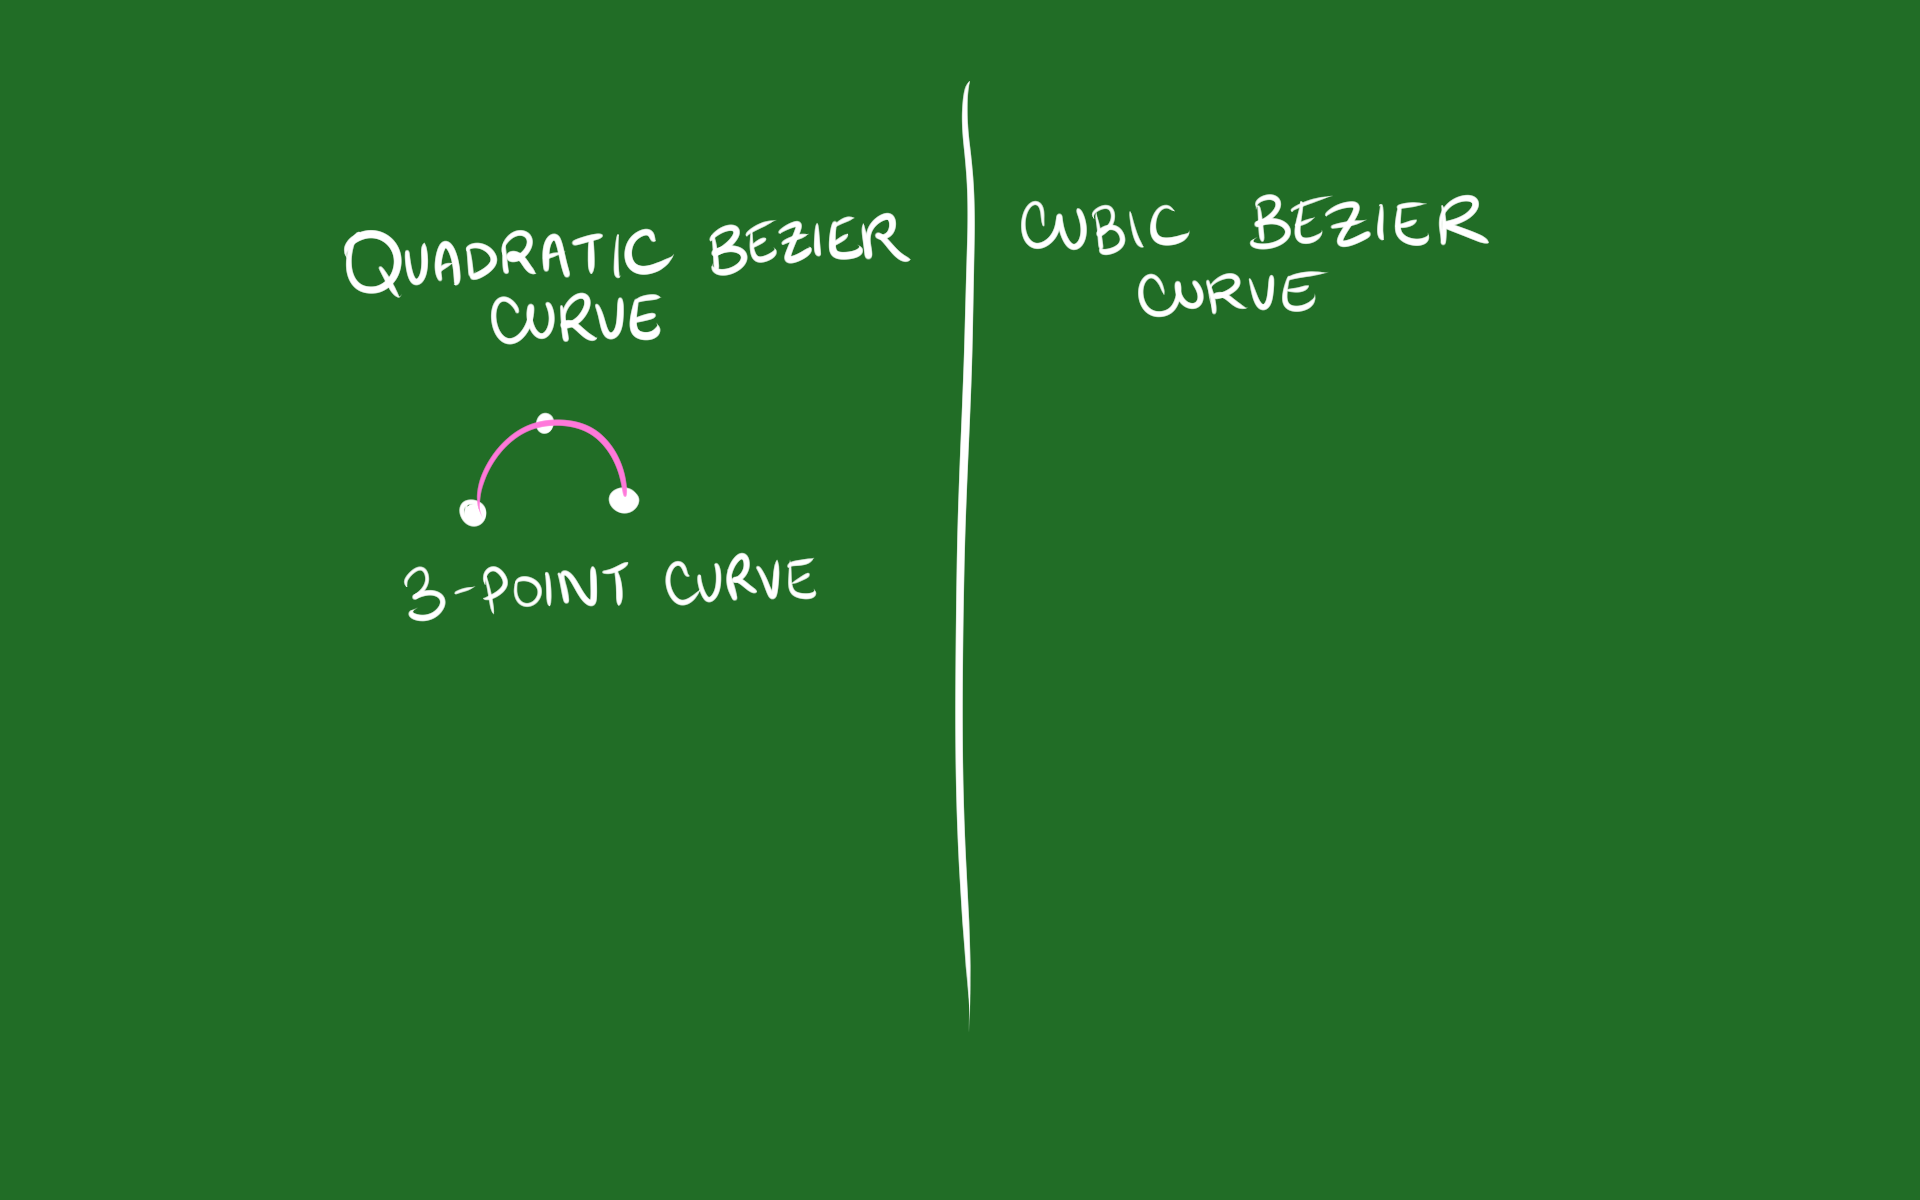 QUADRATIC BEZIER
CURVE
3-POINT CURVE
CUBIC BEZIER
CURVE